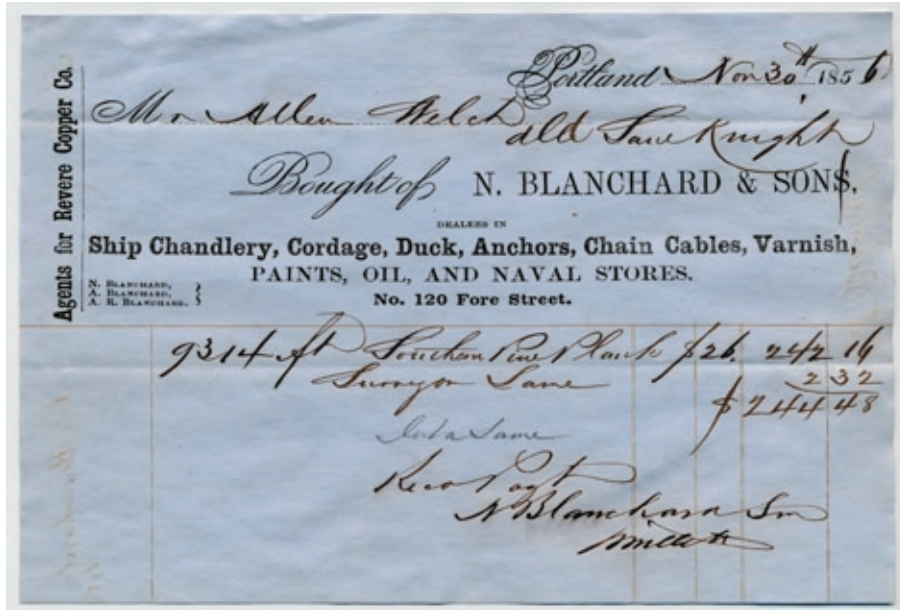 Portland Nov 30th 1856
Mr Allen Welch
Agents for Revere Copper Co.
Bought of N. BLANCHARD & SONS,
DEALERS IN
Ship Chandlery, Cordage, Duck, Anchors, Chain Cables, Varnish,
PAINTS, OIL, AND NAVAL STORES.
N. BLANCHARD,
A. BLANCHARD,
A. R. BLANCHARD.
No. 120 Fore Street.
9314 ft Southern Pine Plank $26. 242 16
Survey on Same 2 32
$ 244 48
Same
Recd Payt
N Blanchard Son